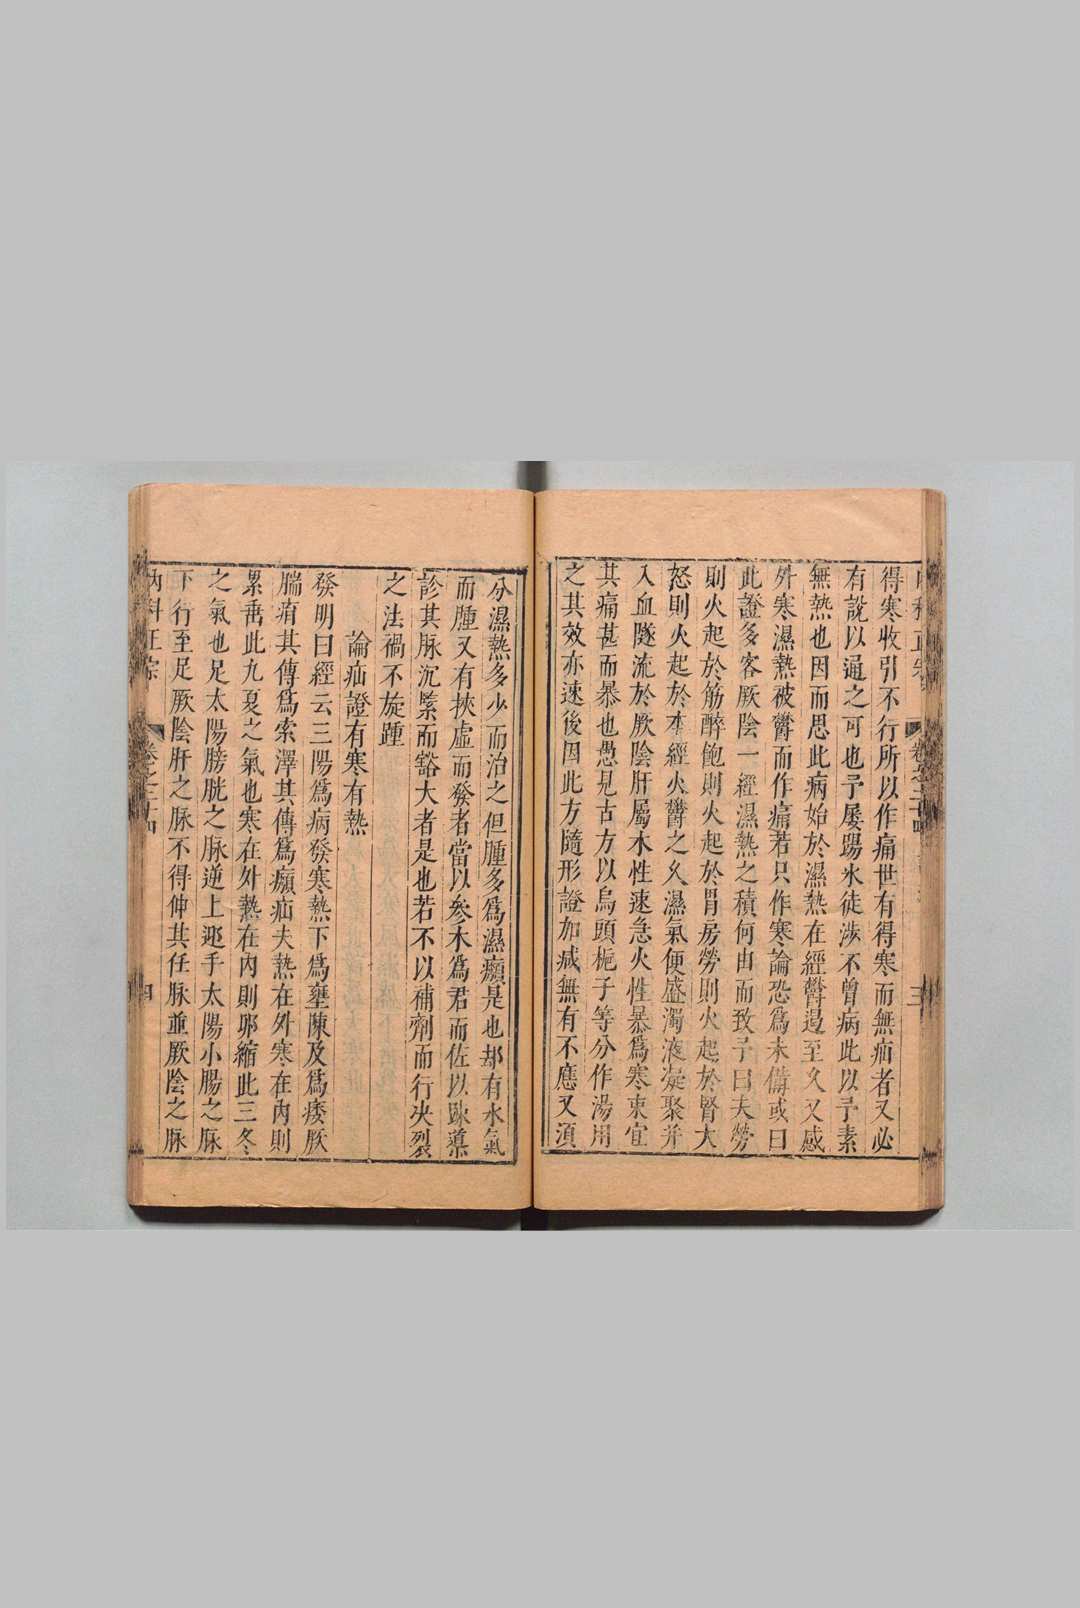 得寒收引不行所以作痛世有得寒而無疝者又必
有說以通之可也予屢踢氷徒涉不曾病此以予素
無熱也因而思此病始於濕熱在經欝遏至久又感
外寒濕熱被欝而作痛若只作寒論恐爲未備或曰
此證多客厥陰一經濕熱之積何由而致予曰夫勞
則火起於筋醉飽則火起於胃房勞則火起於腎大
怒則火起於本經火欝之久濕氣便盛濁液凝聚并
入血隧流於厥陰肝屬木性速急火性暴爲寒束宜
其痛甚而暴也愚見古方以烏頭梔子等分作湯用
之其效亦速後因此方隨形證加减無有不應又須
分濕熱多少而治之但腫多爲濕㿗是也却有水氣
而腫又有挾虛而發者當以參术爲君而佐以䟽導
診其脉沉緊而豁大者是也若不以補劑而行决裂
之法禍不旋踵
論疝證有寒有熱
發明曰經云三陽爲病發寒熱下爲壅陳及爲痿厥
腨㾓其傳爲索澤其傳爲㿗疝夫熱在外寒在內則
累垂此九夏之氣也寒在外熱在內則邪縮此三冬
之氣也足太陽膀胱之脉逆上迎手太陽小腸之脉
下行至足厥陰肝之脉不得伸其任脉並厥陰之脉
內科正宗
卷之二十四
四